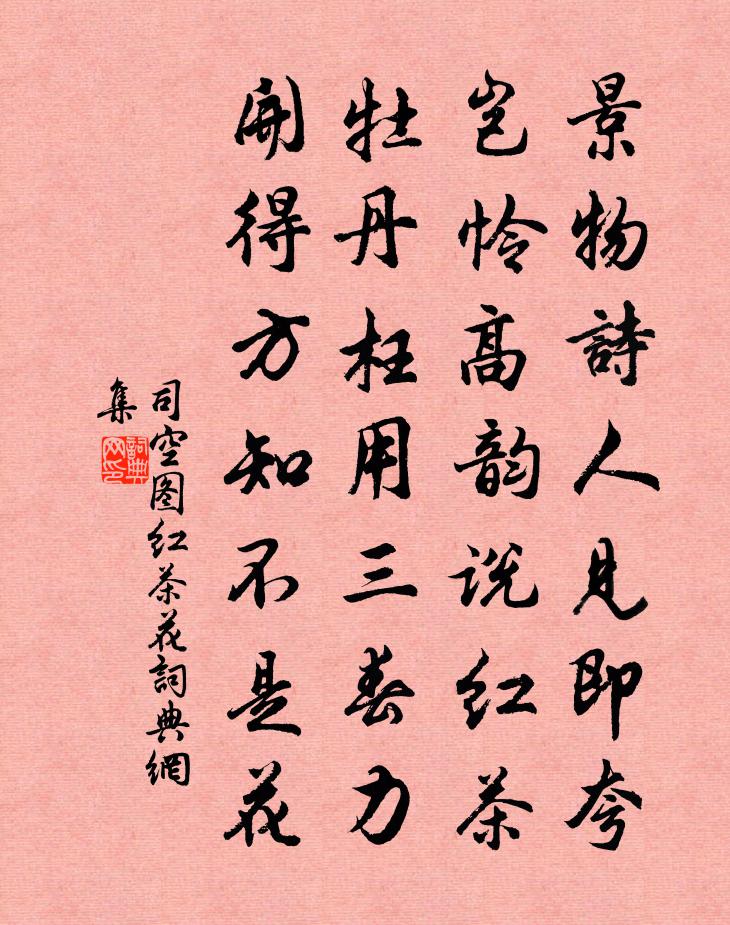 景物詩人見即夸
豈怜高韵說紅茶
牡丹枉用三春力
開得方知不是花
司空图紅茶花詞典網
集
詞典
网印